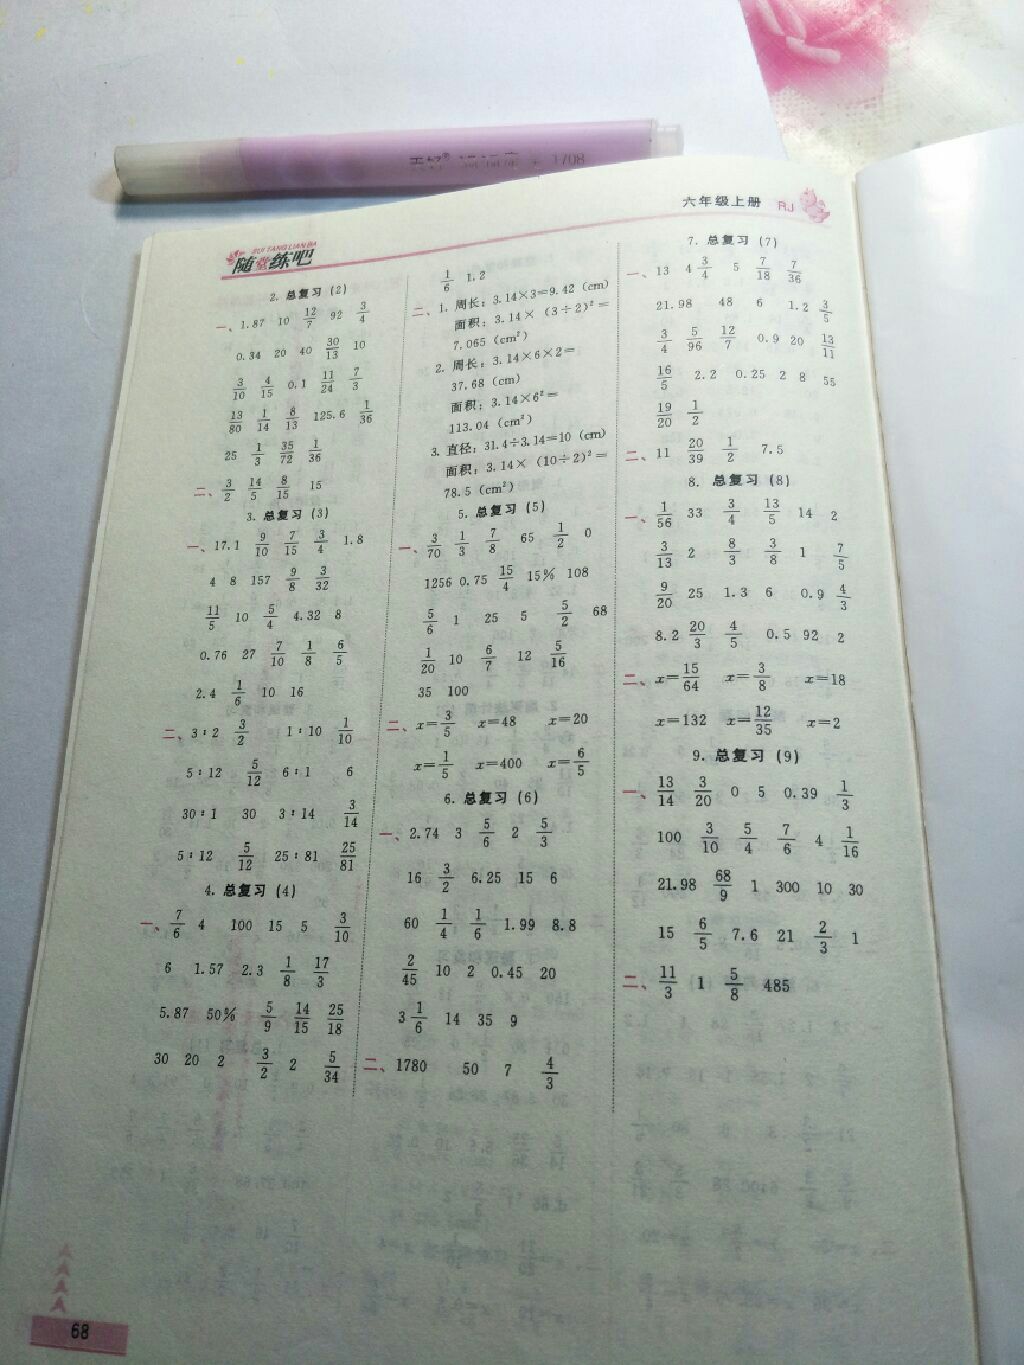 1708
六年级上册 RJ
SUI TANG LIAN BA
随堂练吧
2. 总复习 (2)
一、1.87 10 12/7 92 3/4
0.34 20 40 30/13 10
3/10 4/15 0.1 11/24 7/3
13/80 1/14 8/13 125.6 1/36
25 1/3 35/72 1/36
二、3/2 14/5 8/15 15
3. 总复习 (3)
一、17.1 9/10 7/15 3/4 1.8
4 8 157 9/8 3/32
11/5 10 5/4 4.32 8
0.76 27 7/10 1/8 6/5
2.4 1/6 10 16
二、3:2 3/2 1:10 1/10
5:12 5/12 6:1 6
30:1 30 3:14 3/14
5:12 5/12 25:81 25/81
4. 总复习 (4)
一、7/6 4 100 15 5 3/10
6 1.57 2.3 1/8 17/3
5.87 50% 5/9 14/15 25/18
30 20 2 3/2 2 5/34
1/6 1.2
二、1. 周长: 3.14×3=9.42 (cm)
面积: 3.14× (3÷2)²=
7.065 (cm²)
2. 周长: 3.14×6×2=
37.68 (cm)
面积: 3.14×6²=
113.04 (cm²)
3. 直径: 31.4÷3.14=10 (cm)
面积: 3.14× (10÷2)²=
78.5 (cm²)
5. 总复习 (5)
一、3/70 1/3 7/8 65 1/2 0
1256 0.75 15/4 15% 108
5/6 1 25 5 5/2 68
1/20 10 6/7 12 5/16
35 100
二、x=3/5 x=48 x=20
x=1/5 x=400 x=6/5
6. 总复习 (6)
一、2.74 3 5/6 2 5/3
16 3/2 6.25 15 6
60 1/4 1/6 1.99 8.8
2/45 10 2 0.45 20
3 1/6 14 35 9
二、1780 50 7 4/3
7. 总复习 (7)
一、13 4 3/4 5 7/18 7/36
21.98 48 6 1.2 3/5
3/4 5/96 12/7 0.9 20 13/11
16/5 2.2 0.25 2 8 55
19/20 1/2
二、11 20/39 1/2 7.5
8. 总复习 (8)
一、1/56 33 3/4 13/5 14 2
3/13 2 8/3 3/8 1 7/5
9/20 25 1.3 6 0.9 4/3
8.2 20/3 4/5 0.5 92 2
二、x=15/64 x=3/8 x=18
x=132 x=12/35 x=2
9. 总复习 (9)
一、13/14 3/20 0 5 0.39 1/3
100 3/10 5/4 7/6 4 1/16
21.98 68/9 1 300 10 30
15 6/5 7.6 21 2/3 1
二、11/3 1 5/8 485
68